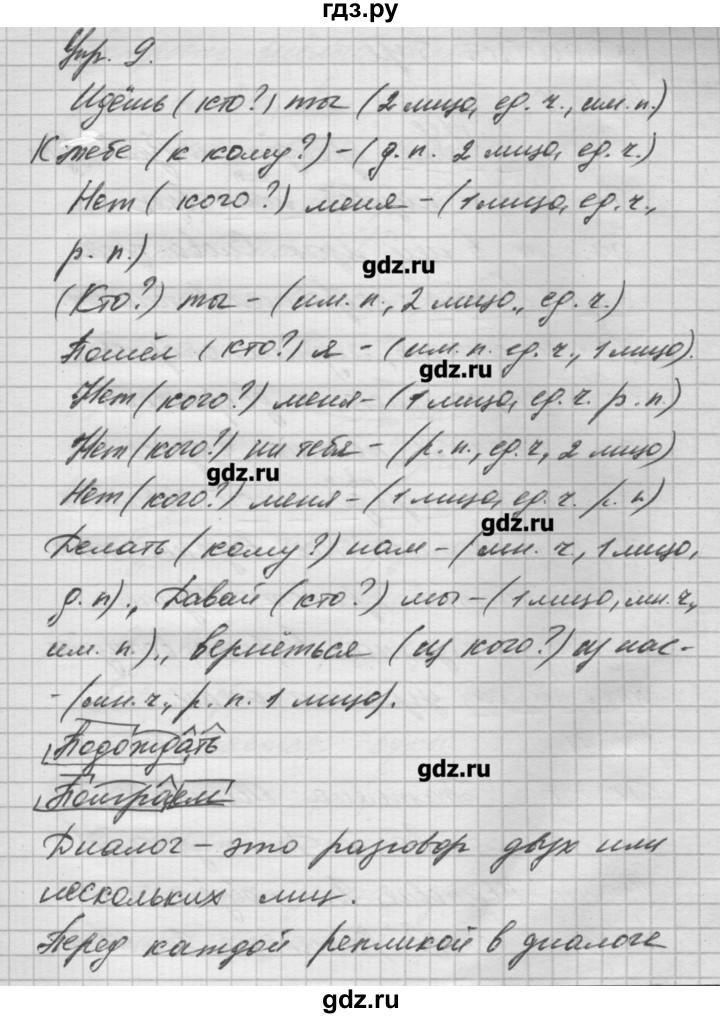 гдз.ру
Упр. 9.
Идёшь (кто?) ты (2 лицо, ед. ч., им. п.)
К тебе (к кому?) – (д. п. 2 лицо, ед. ч.)
Нет (кого?) меня – (1 лицо, ед. ч.,
р. п.)
gdz.ru
(Кто?) ты – (им. п., 2 лицо, ед. ч.)
Пошёл (кто?) я – (им. п. ед. ч., 1 лицо).
gdz.ru
Нет (кого?) меня – (1 лицо, ед. ч. р. п.)
Нет (кого?) ни тебя – (р. п., ед. ч, 2 лицо)
gdz.ru
Нет (кого?) меня – (1 лицо, ед. ч. р. п)
gdz.ru
Делать (кому?) нам – (мн. ч, 1 лицо,
д. п)., Давай (кто?) мы – (1 лицо, мн. ч,
им. п.)., вернёться (из кого?) из нас –
– (мн. ч., р. п. 1 лицо).
Подождать
gdz.ru
Поиграем
Диалог – это разговор двух или
нескольких лиц.
Перед каждой репликой в диалоге
gdz.ru